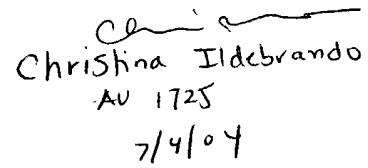 Christina Ildebrando
AU 1725
7/4/04